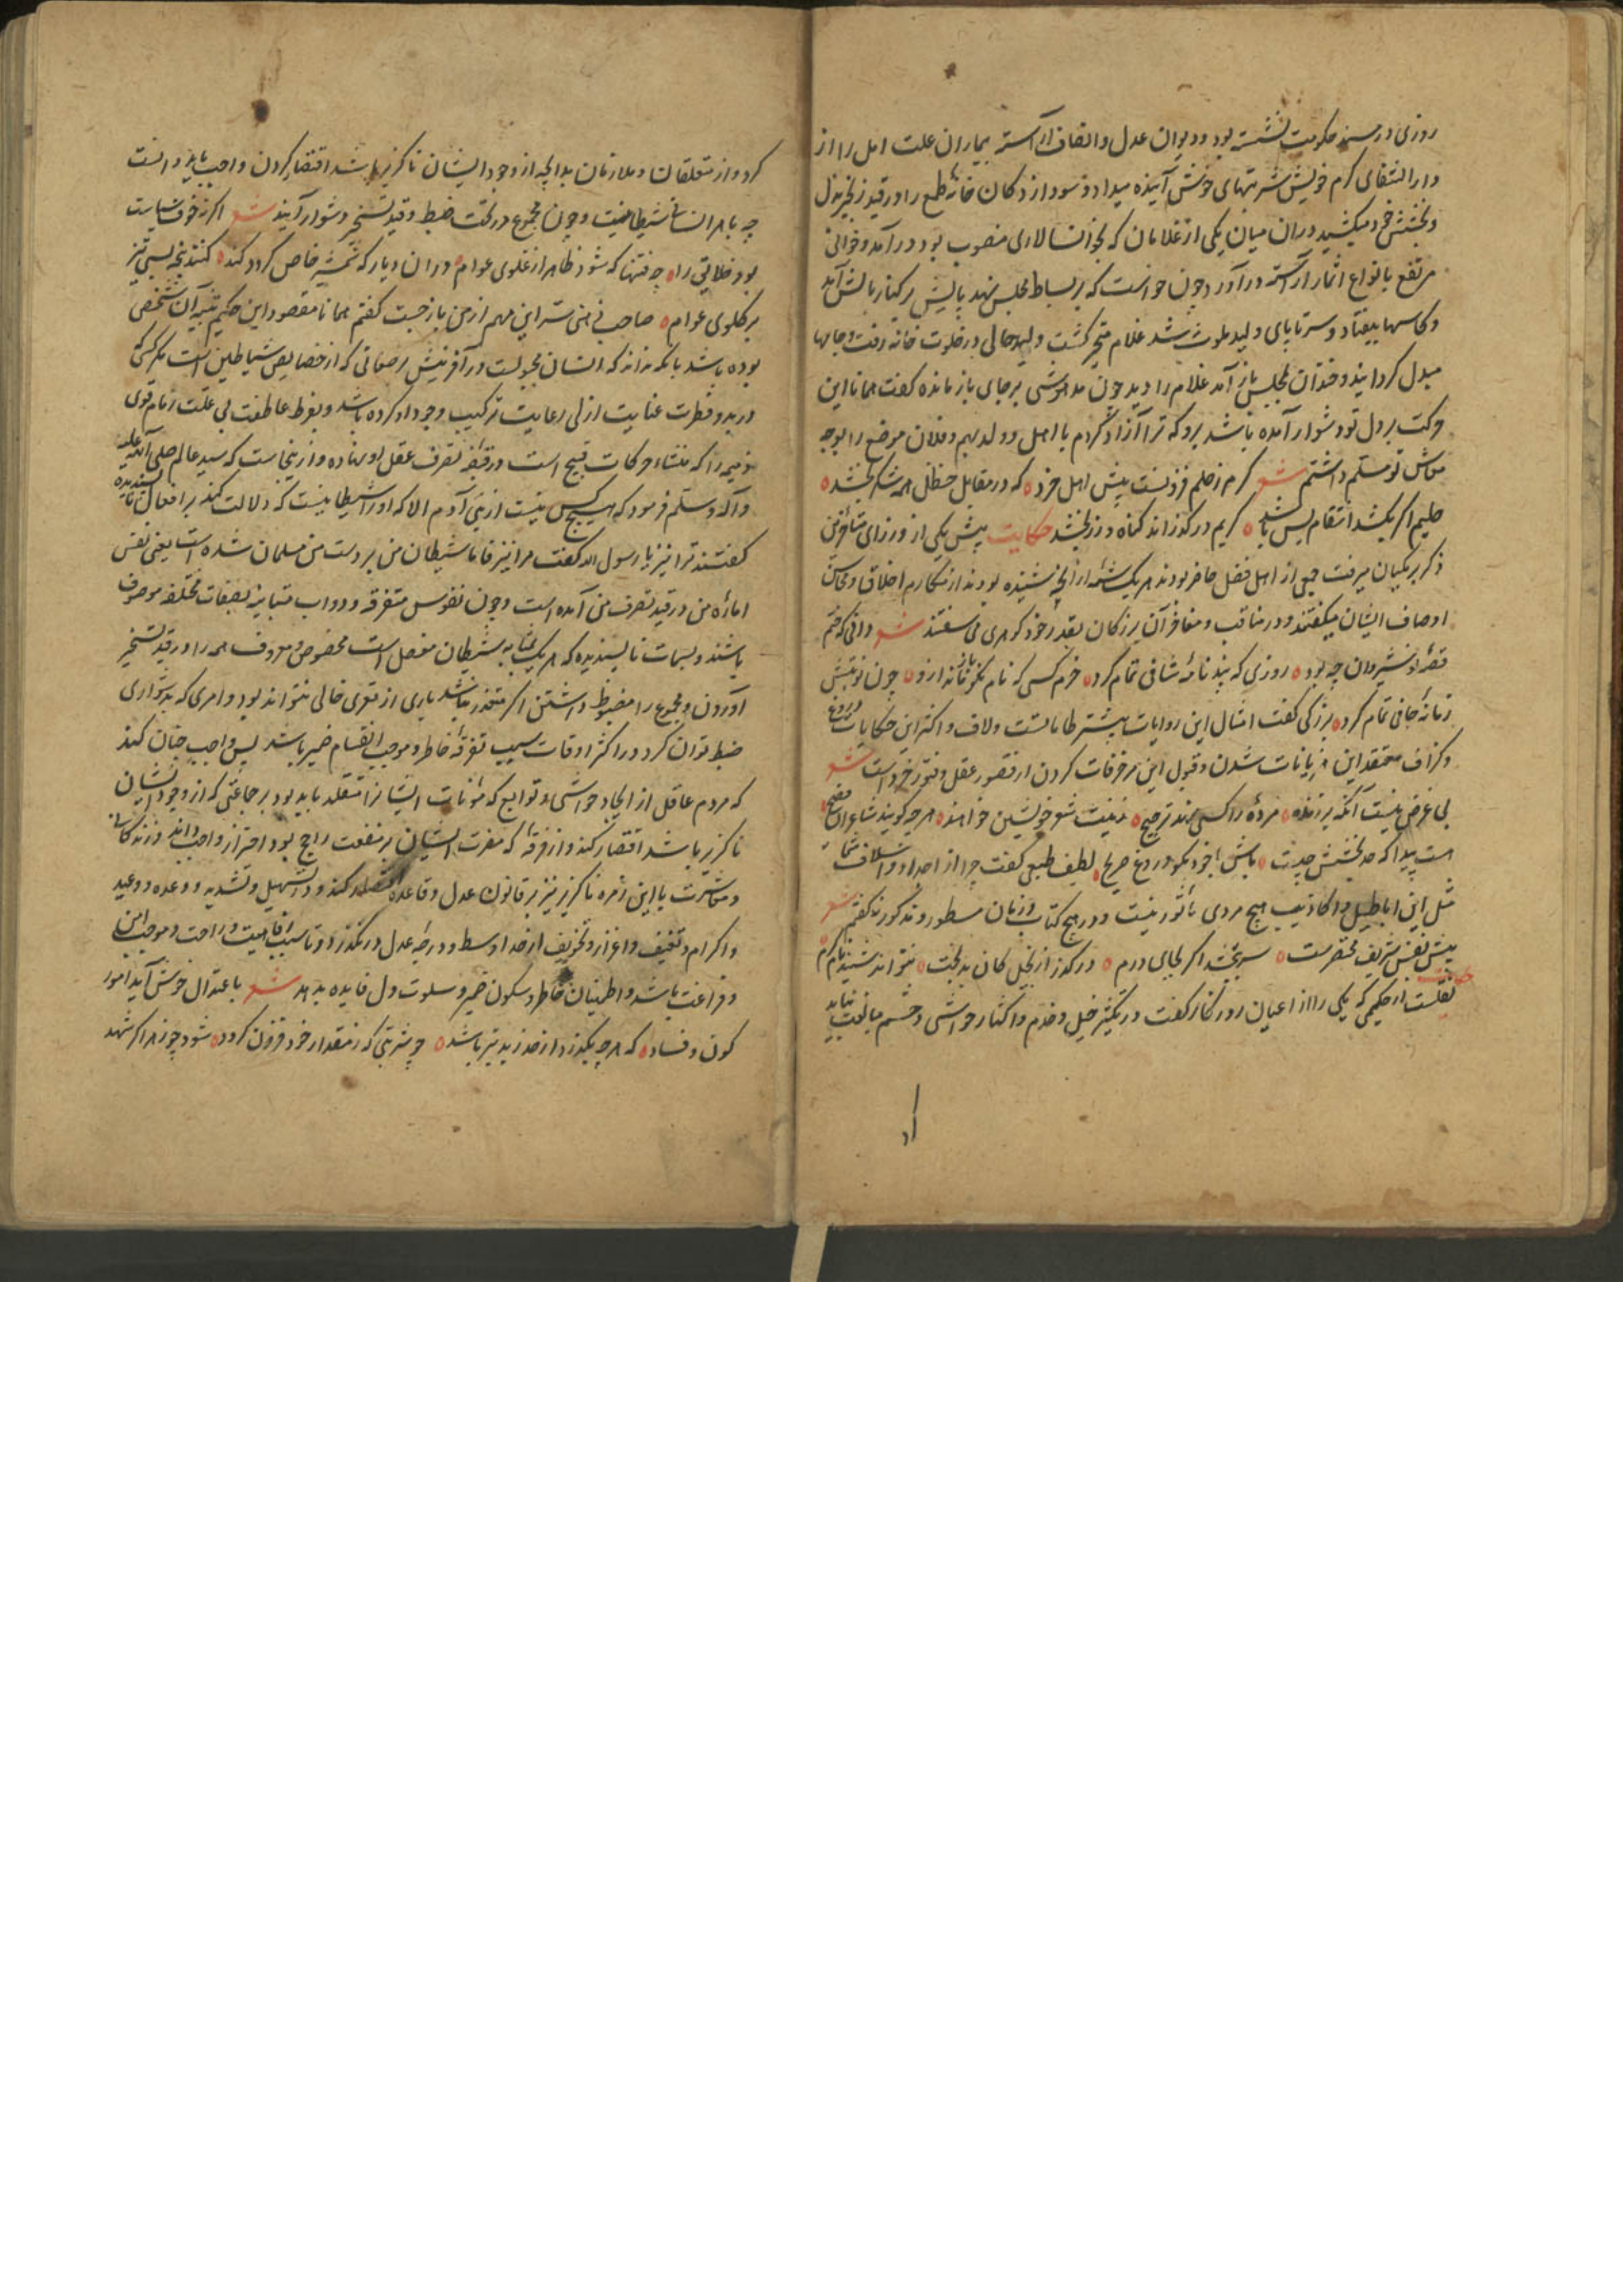 روزی در مسند حکومت نشسته بود و دیوان عدل و انصاف آراسته بیماران علت امل را از
دار الشفای کرم خویش شربتهای خوش آینده میداد و سودازدکان خانهٔ طمع را در قید زنجیر بذل
و بخشش خود میکشید در ان میان یکی از غلامان که بخوانسالاری منصوب بود در آمد و خوانی
مرتفع بانواع اثمار آراسته در آورد چون خواست که بر بساط مجلس نهد پایش بر کنار بالش آمد
و کاسها بیفتاد و سرتاپای ولید ملوث شد غلام متحیر کشت ولید حالی در خلوت خانه رفت و جامها
مبدل کردانید و خندان بمجلس باز آمد غلام را دید چون مدهوشی بر جای باز مانده کفت همانا این
حرکت بر دل تو دشوار آمده باشد برو که ترا آزاد کردم با اهل و ولد بهم و فلان موضع را بوجه
معاش تو مسلم داشتم شعر کرم ز حلم فزونست پیش اهل خرد که در مقابل حنظل همه شکر بخشد
حلیم اکر بکشد انتقام بس باشد کریم در کذراند کناه و زر بخشد حکایت پیش یکی از وزرای متأخرین
ذکر برمکیان میرفت جمعی از اهل فضل حاضر بودند هر یک شمهٔ از آنچه شنیده بودند از مکارم اخلاق و محاسن
اوصاف ایشان میکفتند و در مناقب و مفاخر آن بزرکان بقدر خود کوهری می سفتند شعر دانی که ختم
قصهٔ نوشیروان چه بود روزی که پند نامهٔ شافی تمام کرد خرم کسی که نام نکو ماند باز ازو چون نوبتش
زمانهٔ جانی تمام کرد بزرکی کفت امثال این روایات بیشتر طاماتست و لاف و اکثر این حکایات دروغ
و کزاف معتقد این هذیانات شدن و قبول این مزخرفات کردن از قصور عقل و فتور خرد است شعر
بی غرض نیست آنکه بر زنده مردهٔ را کسی نهد ترجیح زینت شعر خویشتن خواهند هر چه کویند شاعران فصیح
هست پیدا که حد بخشش چیست باش با خود مکو دروغ صریح لطیف طبعی کفت چرا از اجداد و اسلاف شما
مثل این اباطیل و اکاذیب هیچ مردی مأثور نیست و در هیچ کتاب و زمان مسطور و مذکور نه کفتم شعر
پیش نفس شریف مختصرست سر ببخشد اکر بجای درم در کذر از بخیل کان بدبخت نتواند شنید نام کرم
حکایت نقلست از حکیمی که یکی را از اعیان روزکار کفت در تکثیر خیل و خدم و اکثار حواشی و حشم مبالغت نباید
کرد و از متعلقان و ملازمان بدانچه از وجود ایشان ناکزیر باشد اقتصار کردن واجب باید دانست
چه با هر انسان شیطانیست و چون مجموع در تحت ضبط و قید تسخیر دشوار آیند شعر اکر نه خوف سیاست
بود خلایق را چه فتنها که شود ظاهر از غلوی عوام در ان دیار که شمشیر خاص کردد کند کنند پنجه بسی تیز
بر کلوی عوام صاحب ذهنی سر این مهم از من باز جست کفتم همانا مقصود این حکیم تنبیه آن شخص
بوده باشد بآنکه بداند که انسان مجبولست در آفرینش بر صفاتی که از خصایص شیاطین است مکر کسی
در بدو فطرت عنایت ازلی رعایت ترکیب وجود او کرده باشد و بفرط عاطفت بی علت زمام قوی
ذمیمه را که منشاء حرکات قبیح است در قبضهٔ تصرف عقل او نهاده و از ینجاست که سید عالم صلی الله علیه
و آله و سلم فرمود که هیچ کس نیست از بنی آدم الا که او را شیطانیست که دلالت کند بر افعال ناپسندیده
کفتند ترا نیز یا رسول الله کفت مرا نیز فاما شیطان من بر دست من مسلمان شده است یعنی نفس
امارهٔ من در قید تصرف من آمده است و چون نفوس متفرقه و دواب متباینه بصفات مختلفه موصوف
باشند و بسمات ناپسندیده که هر یک بمثابهٔ شیطان مفصل است مخصوص و معروف همه را در قید تسخیر
آوردن و مجموع را مضبوط داشتن اکر متعذر نباشد باری از تعری خالی نتواند بود و امری که بدشواری
ضبط توان کرد در اکثر اوقات سبب تفرقهٔ خاطر و موجب انقسام ضمیر باشد پس واجب چنان کند
که مردم عاقل از ایجاد حواشی و توابع که مؤنات ایشان را متقلد باید بود بر جماعتی که از وجود ایشان
ناکزیر باشد اقتصار کند و از فرقهٔ که مضرت ایشان بر منفعت راجح بود احتراز واجب داند و زندکانی
و معاشرت با این زمره ناکزیر نیز بر قانون عدل و قاعدهٔ اقتصاد کند و در تسهیل و تشدید و وعده و وعید
و اکرام و تعنیف و اعزاز و تخویف از حد اوسط و درجهٔ عدل در نکذرد تا سبب رفاهیت و راحت و موجب امن
و فراغت باشد و اطمینان خاطر و سکون ضمیر و سلوت دل فایده بدهد شعر باعتدال خوش آید امور
کون و فساد که هر چه بکذرد از حد زبد بتر باشد چو شربتی که ز مقدار خود فزون کردد شود چو زهر اکر شهد